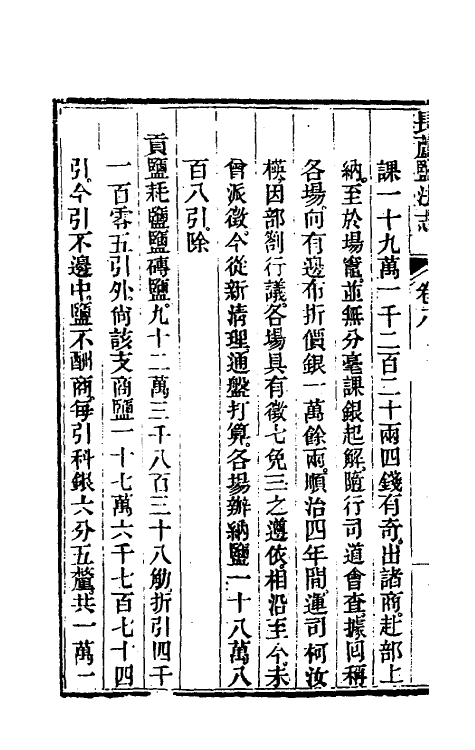 長蘆鹽法志 卷八
課一十九萬一千二百二十兩四錢有奇出諸商赴部上
納至於場竈並無分毫課銀起解隨行司道會查據回稱
各場向有邊布折價銀一萬餘兩順治四年間運司柯汝
楧因部劄行議各場具有徵七免三之遵依相沿至今未
曾派徵今從新清理通盤打算各場辦納鹽一十八萬八
百八引除
貢鹽耗鹽鹽磚鹽九十二萬三千八百三十八觔折引四千
一百零五引外尙該支商鹽一十七萬六千七百七十四
引今引不邊中鹽不酬商每引科銀六分五釐共一萬一